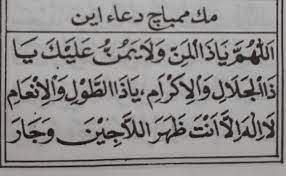 مك ممباچ دعاء اين
اَللّٰهُمَّ يَاذَا الْمَنِّ وَلَا يَمُنُّ عَلَيْكَ يَا
ذَا الْجَلَالِ وَالْاِكْرَامِ، يَاذَا الطَّوْلِ وَالْاِنْعَامِ
لَااِلٰهَ اِلَّا اَنْتَ ظَهَرَ اللَّاجِيْنَ وَجَارَ